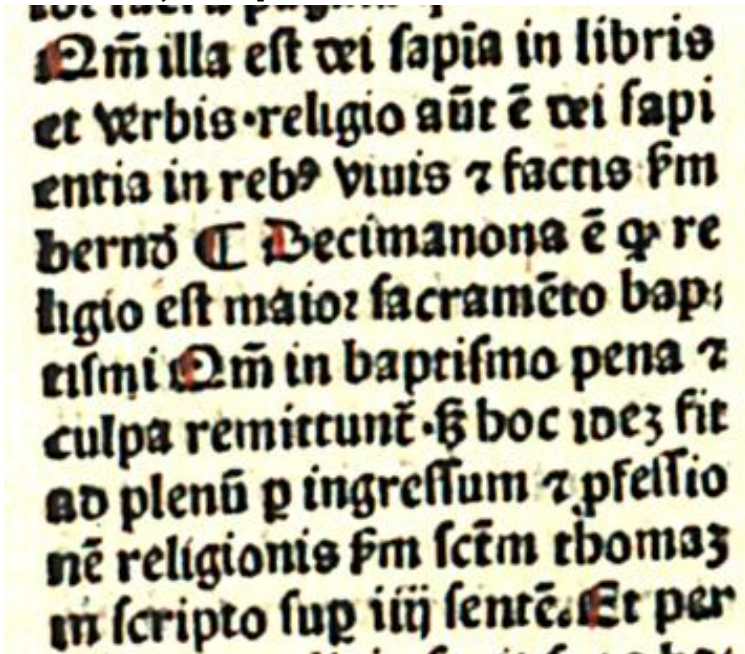 Qm̄ illa est dei sapīa in libris
et verbis·religio aūt ē dei sapi
entia in rebꝰ viuis ⁊ factis ẜm
bernd̄ ¶ Decimanona ē ꝙ re
ligio est maior sacramēto bap:
tismi Qm̄ in baptismo pena ⁊
culpa remittunt̄·ẜꝫ hoc idez fit
ad plenū ꝑ ingressum ⁊ ꝓfessio
nē religionis ẜm sct̄m thomaz
in scripto suꝑ iiij sentē. Et per